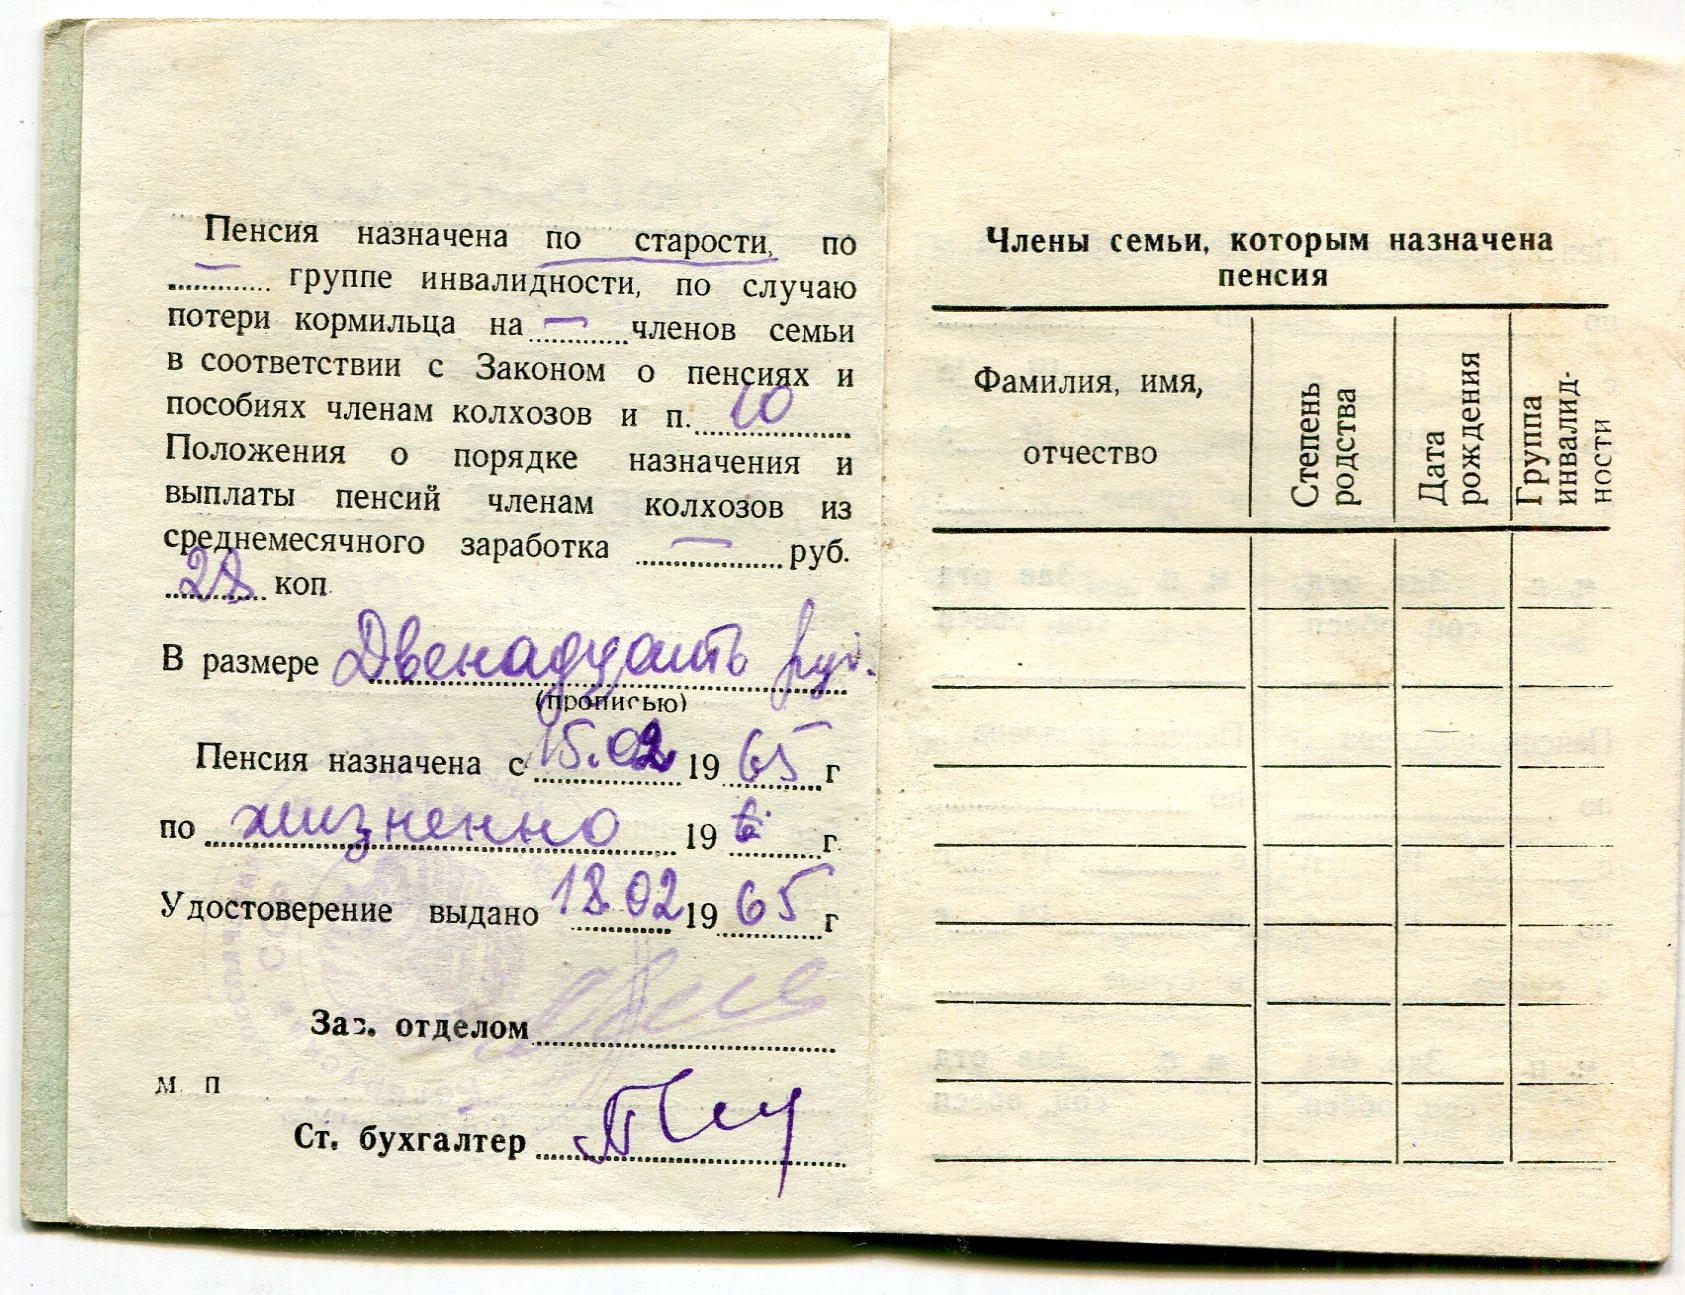 Пенсия назначена по старости, по
— группе инвалидности, по случаю
потери кормильца на — членов семьи
в соответствии с Законом о пенсиях и
пособиях членам колхозов и п. 10
Положения о порядке назначения и
выплаты пенсий членам колхозов из
среднемесячного заработка — руб.
28 коп.
В размере Двенадцать руб.
(прописью)
Пенсия назначена с 15.02 1965 г
по жизненно 196 г.
Удостоверение выдано 18.02 1965 г
Зав. отделом
М. П
Ст. бухгалтер
Члены семьи, которым назначена
пенсия
Фамилия, имя,
отчество
Степень
родства
Дата
рождения
Группа
инвалид-
ности